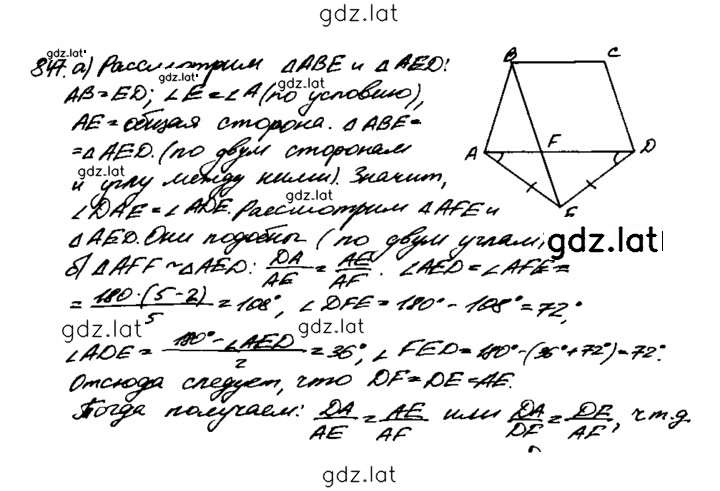 gdz.lat
gdz.lat
847. а) Рассмотрим △ABE и △AED:
gdz.lat
AB = ED; ∠E = ∠A (по условию),
AE = общая сторона. △ABE =
= △AED. (по двум сторонам
gdz.lat
и углу между ними). Значит,
gdz.lat
∠DAE = ∠ADE. Рассмотрим △AFE и
△AED. Они подобны (по двум углам)
gdz.lat
б) △AFF ~ △AED: DA/AE = AE/AF. ∠AED = ∠AFE =
= 180·(5-2)/5 = 108°, ∠DFE = 180° - 108° = 72°,
gdz.lat
gdz.lat
∠ADE = 180° - ∠AED/2 = 36°, ∠FED = 180° - (36° + 72°) = 72°.
Отсюда следует, что DF = DE = AE.
gdz.lat
gdz.lat
Тогда получаем: DA/AE = AE/AF или DA/DF = DE/AF, ч.т.д
gdz.lat
B C
A F D
E